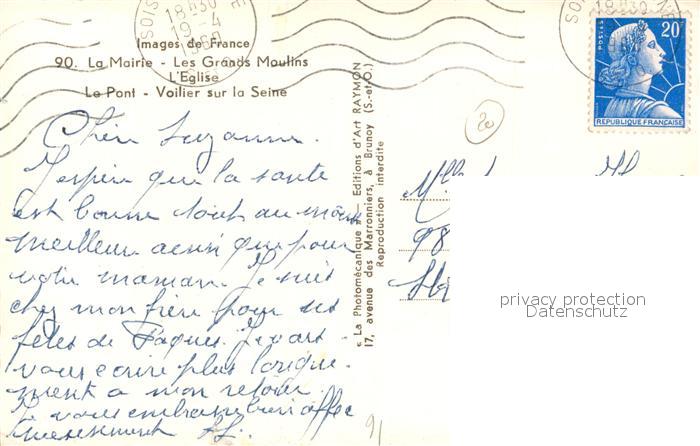 SOIS
18H30
19-4
1960
18H30
SOIS
20F
POSTES
REPUBLIQUE FRANÇAISE
Images de France
90. La Mairie - Les Grands Moulins
L'Eglise
Le Pont - Voilier sur la Seine
« La Photomécanique » — Editions d'Art RAYMON
17, avenue des Marronniers, à Brunoy (S.-et-O.)
Reproduction interdite
20
Chère Suzanne.
J'espère que la santé
est bonne tout au moins
meilleur ainsi que pour
votre maman. Je suis
chez mon frère pour les
fêtes de Pâques. Je vais
vous écrire plus longue-
ment a mon retour.
Je vous embrasse bien affec
tueusement
Mlle
98
91
privacy protection
Datenschutz